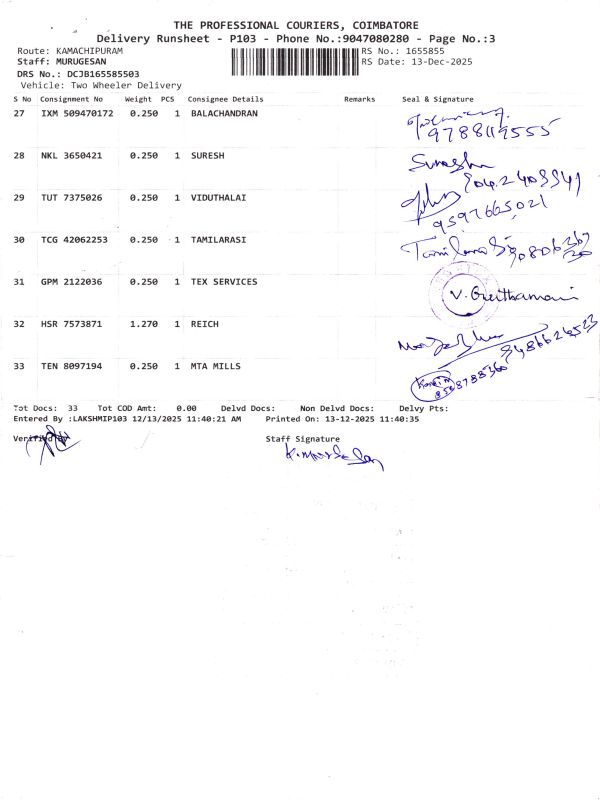 THE PROFESSIONAL COURIERS, COIMBATORE
Delivery Runsheet - P103 - Phone No.:9047080280 - Page No.:3
Route: KAMACHIPURAM
RS No.: 1655855
Staff: MURUGESAN
RS Date: 13-Dec-2025
DRS No.: DCJB165585503
Vehicle: Two Wheeler Delivery
S No Consignment No Weight PCS Consignee Details Remarks Seal & Signature
27 IXM 509470172 0.250 1 BALACHANDRAN
9788119555
28 NKL 3650421 0.250 1 SURESH Suresh
29 TUT 7375026 0.250 1 VIDUTHALAI
9597665021
30 TCG 42062253 0.250 1 TAMILARASI
31 GPM 2122036 0.250 1 TEX SERVICES
32 HSR 7573871 1.270 1 REICH
33 TEN 8097194 0.250 1 MTA MILLS
Tot Docs: 33 Tot COD Amt: 0.00 Delvd Docs: Non Delvd Docs: Delvy Pts:
Entered By :LAKSHMIP103 12/13/2025 11:40:21 AM Printed On: 13-12-2025 11:40:35
Verified By Staff Signature